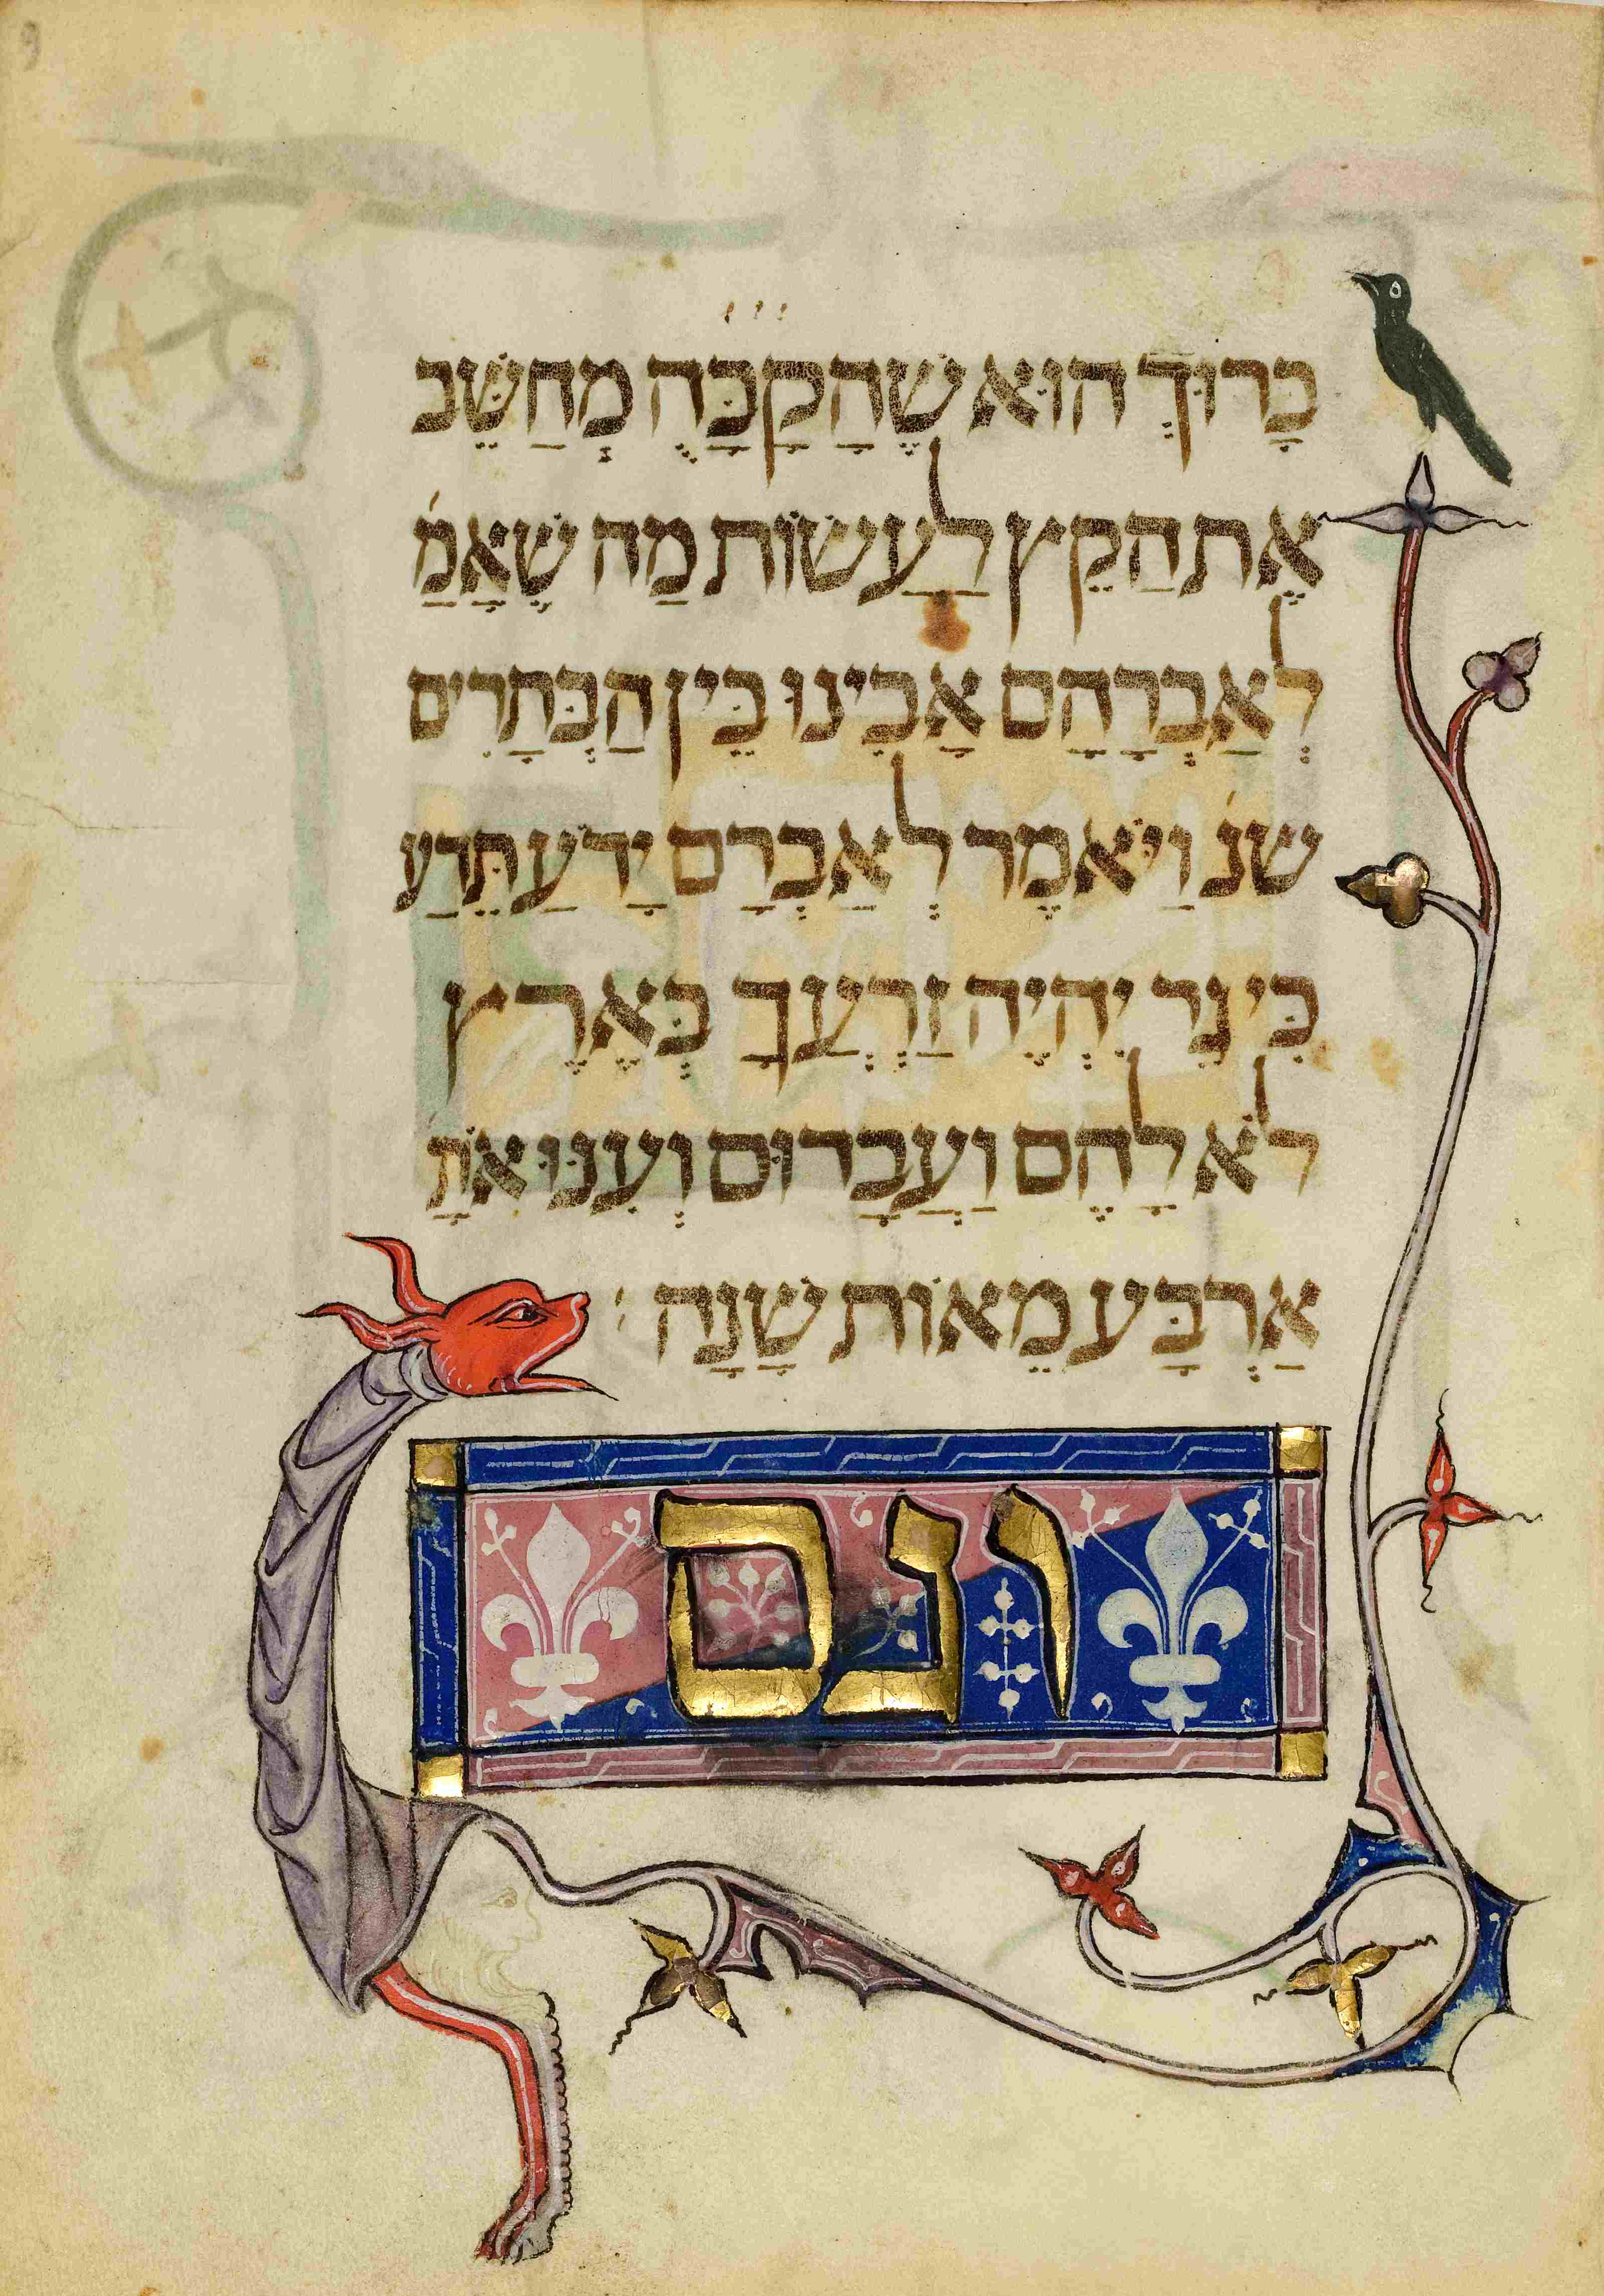 בָּרוּךְ הוּא שֶׁהַקָבָּהֻ מְחַשֵּׁב
אֶת הַקֵץ לַעֲשׂוֹת מַה שֶׁאָמַ
לְאַבְרָהָם אָבִינוּ בֵּין הַבְּתָרִים
שנ וַיֹּאמֶר לְאַבְרָם יָדֹעַ תֵּדַע
כִּי גֵר יִהְיֶה זַרְעֲךָ בְּאֶרֶץ
לֹא לָהֶם וַעֲבָדוּם וְעִנּוּ אֹתָ
אַרְבַּע מֵאוֹת שָׁנָה׃
וגם